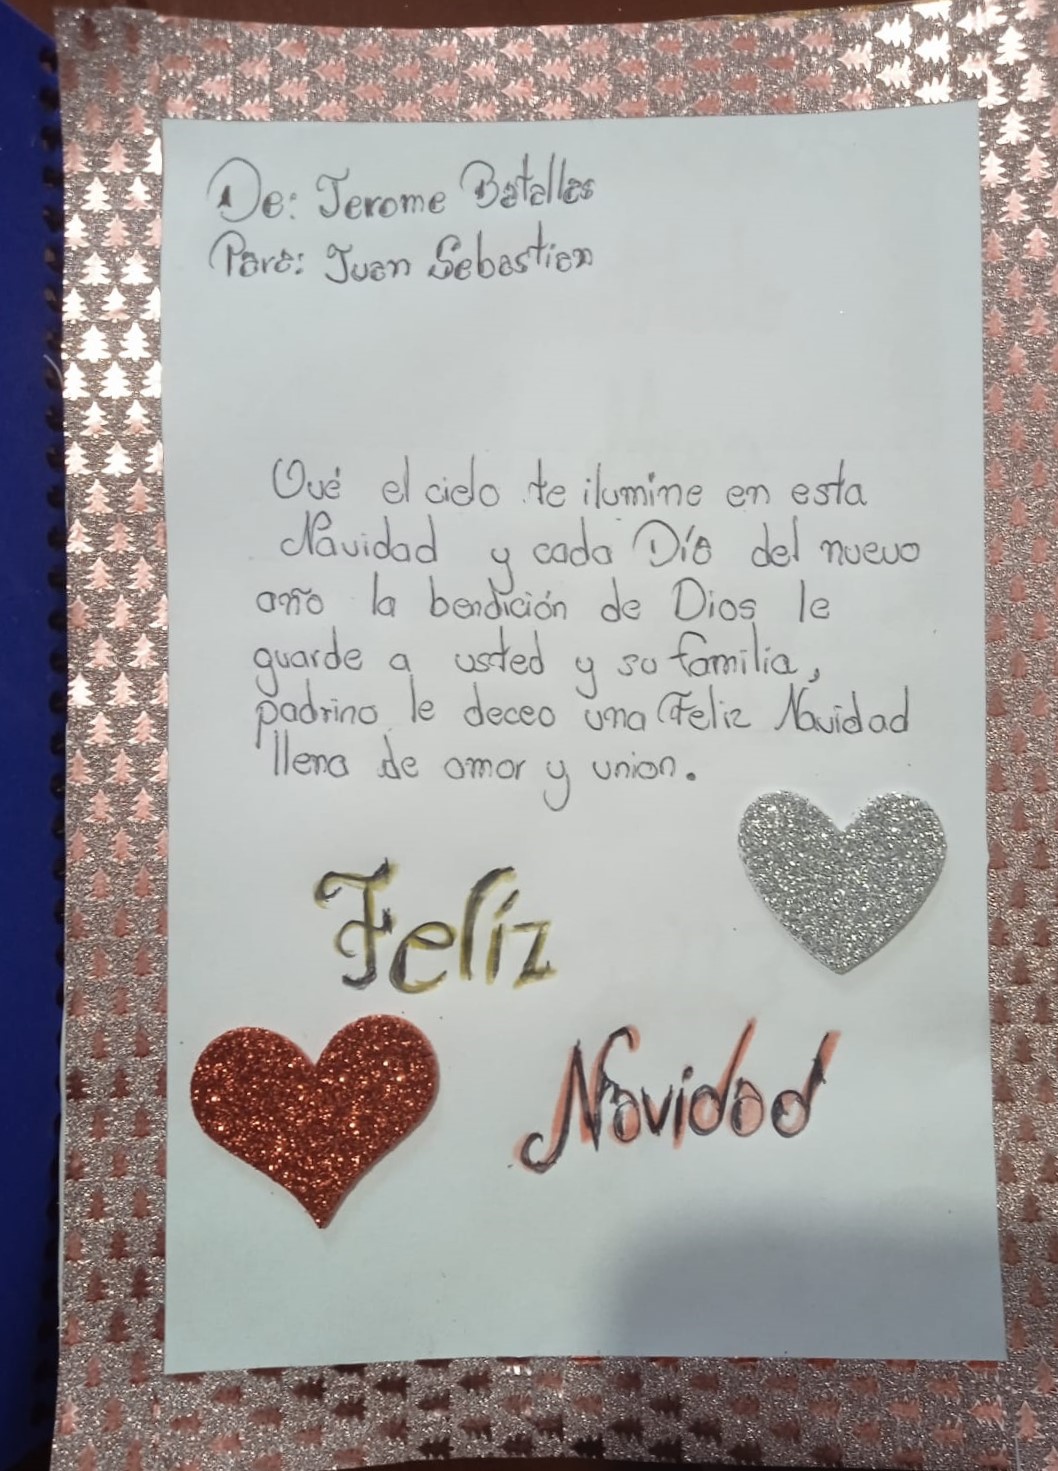 De: Jerome Batallas
Para: Juan Sebastian
Qué el cielo te ilumine en esta
Navidad y cada Día del nuevo
año la bendición de Dios le
guarde a usted y su familia,
padrino le deceo una Feliz Navidad
llena de amor y union.
Feliz
Navidad